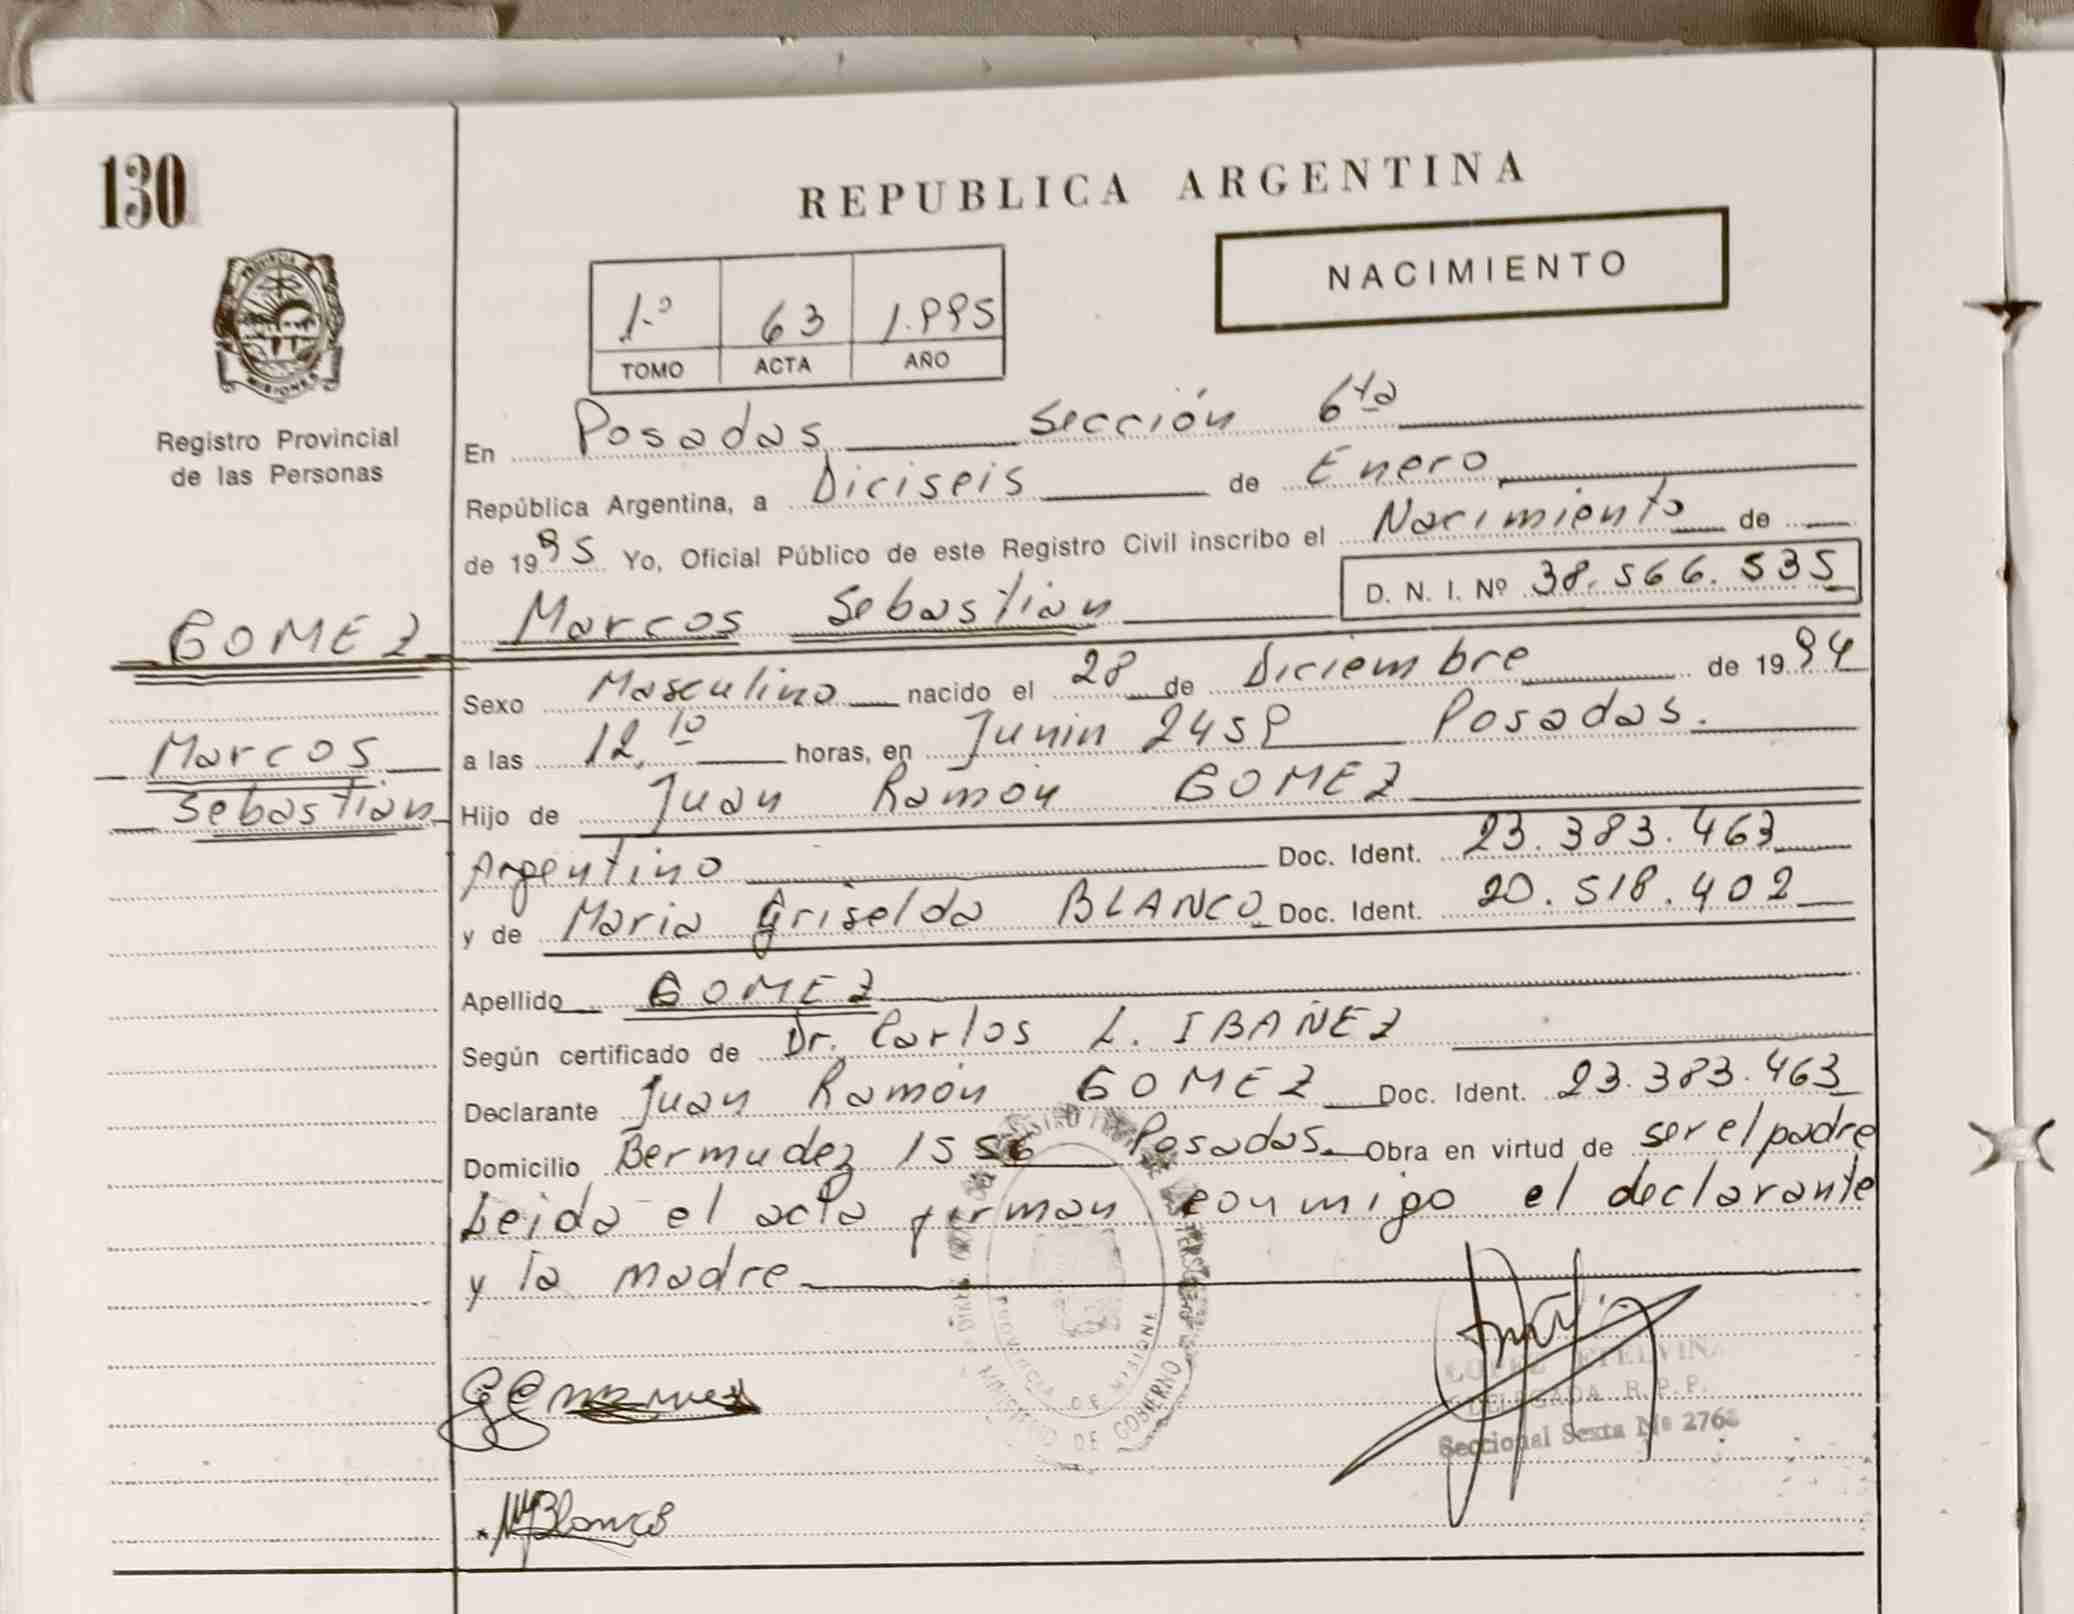 130
REPUBLICA ARGENTINA
NACIMIENTO
1.º 63 1.995
TOMO ACTA AÑO
PROVINCIA
MISIONES
Registro Provincial
de las Personas
En Posadas Sección 6ta
República Argentina, a Diciseis de Enero
de 1995 Yo, Oficial Público de este Registro Civil inscribo el Nacimiento de
D. N. I. Nº 38.566.535
GOMEZ Marcos Sebastián
Sexo Masculino nacido el 28 de Diciembre de 1994
Marcos
Sebastián
a las 12,10 horas, en Junin 2459 Posadas.
Hijo de Juan Ramón GOMEZ
Argentino Doc. Ident. 23.383.463
y de Maria Griselda BLANCO Doc. Ident. 20.518.402
Apellido GOMEZ
Según certificado de Dr. Carlos L. IBAÑEZ
Declarante Juan Ramón GOMEZ Doc. Ident. 23.383.463
Domicilio Bermudez 1556 Posadas. Obra en virtud de ser el padre
Leida el acta firman conmigo el declarante
y la madre
PROVINCIA DE MISIONES
MINISTERIO DE GOBIERNO
ETELVINA
DELEGADA R.P.P.
Seccional Sexta Nº 2768
MGBlanco